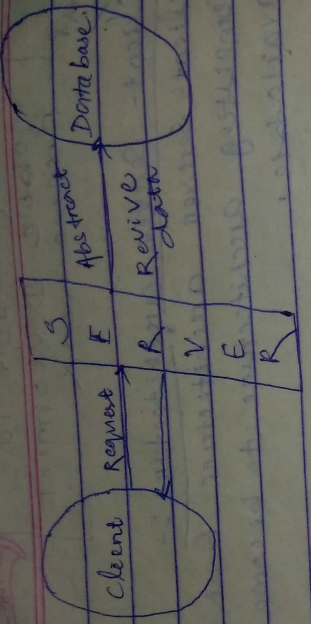 Client
Request
S
E
R
V
E
R
Abstract
Revive
data
Database.